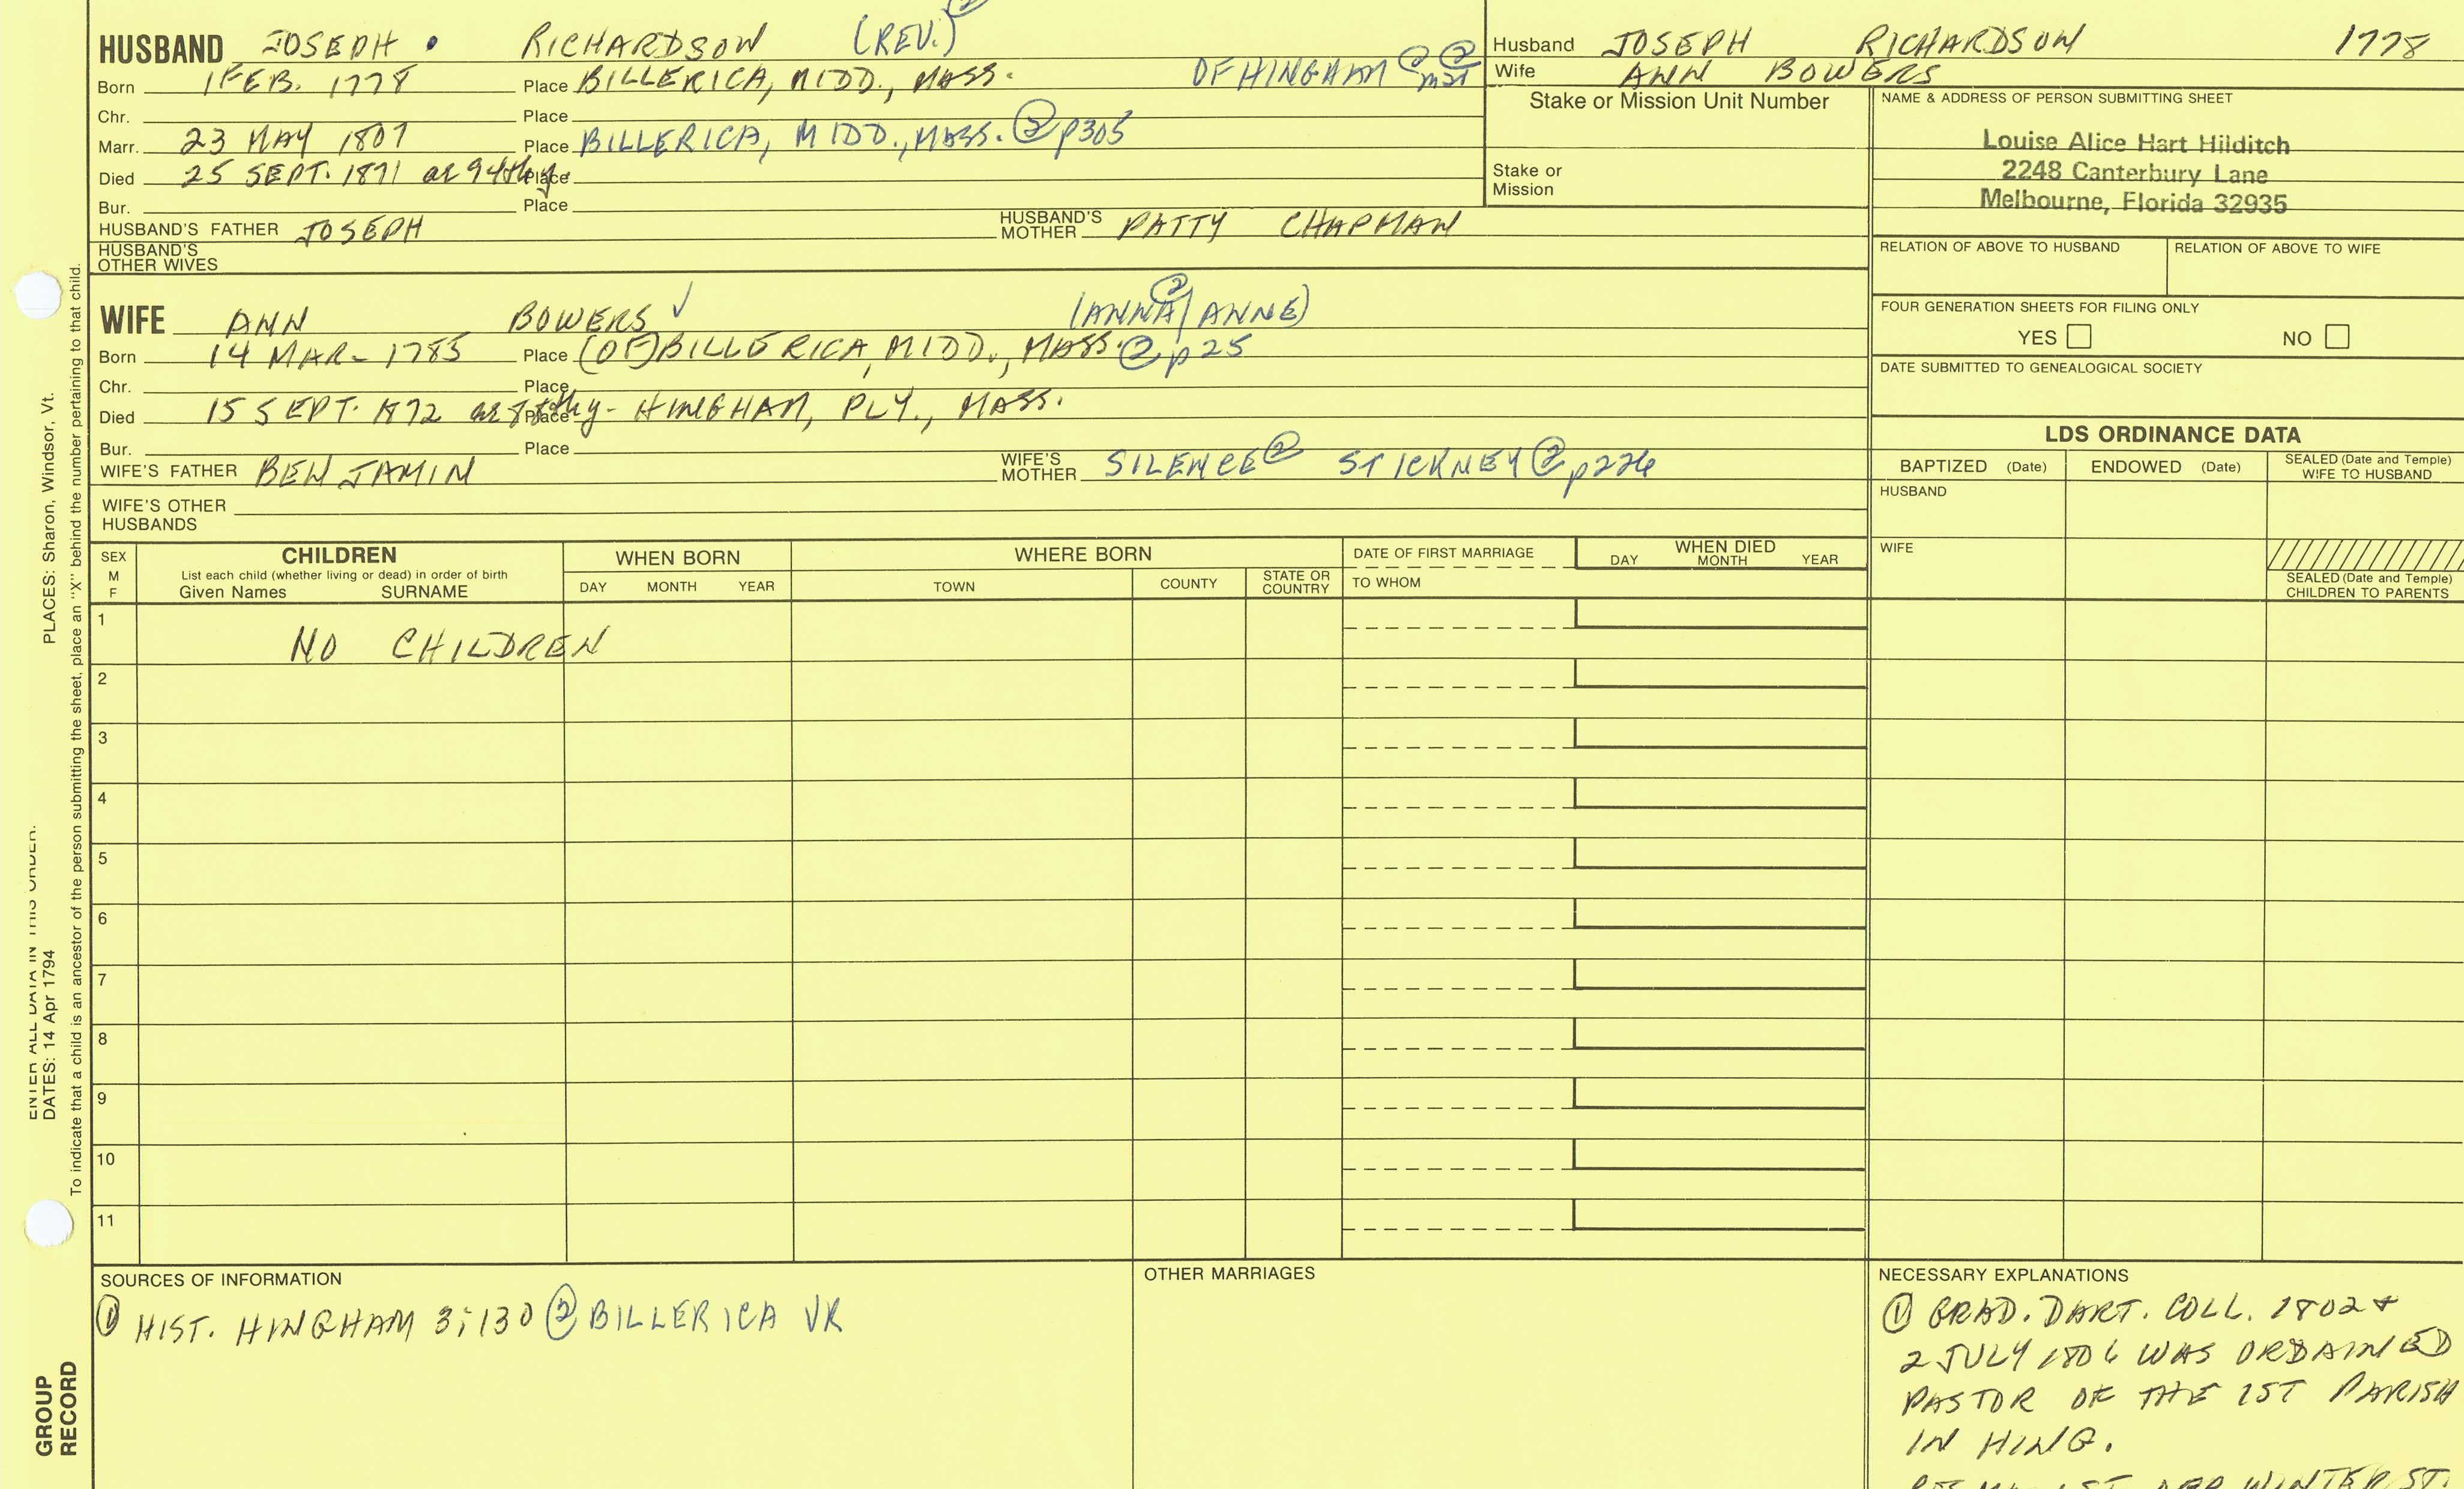 HUSBAND JOSEPH RICHARDSON (REV.) ②
Born 1 FEB. 1778 Place BILLERICA, MIDD., MASS. OF HINGHAM @ ②
Chr. Place
Marr. 23 MAY 1807 Place BILLERICA, MIDD., MASS. ② p305
Died 25 SEPT. 1871 Place
Bur. Place
HUSBAND'S FATHER JOSEPH HUSBAND'S MOTHER PATTY CHAPMAN
HUSBAND'S OTHER WIVES
Husband JOSEPH RICHARDSON 1778
Wife ANN BOWERS
Stake or Mission Unit Number
Stake or
Mission
NAME & ADDRESS OF PERSON SUBMITTING SHEET
Louise Alice Hart Hilditch
2248 Canterbury Lane
Melbourne, Florida 32935
RELATION OF ABOVE TO HUSBAND RELATION OF ABOVE TO WIFE
FOUR GENERATION SHEETS FOR FILING ONLY
YES NO
DATE SUBMITTED TO GENEALOGICAL SOCIETY
WIFE ANN BOWERS ✓ (ANNA/ANNE) ②
Born 14 MAR- 1785 Place (OF) BILLERICA, MIDD., MASS. ② p25
Chr. Place
Died 15 SEPT. 1872 Place HINGHAM, PLY., MASS.
Bur. Place
WIFE'S FATHER BENJAMIN WIFE'S MOTHER SILENCE ② STICKNEY ② p226
WIFE'S OTHER
HUSBANDS
LDS ORDINANCE DATA
BAPTIZED (Date) ENDOWED (Date) SEALED (Date and Temple) WIFE TO HUSBAND
HUSBAND
WIFE
SEALED (Date and Temple)
CHILDREN TO PARENTS
SEX
M
F
CHILDREN
List each child (whether living or dead) in order of birth
Given Names SURNAME
WHEN BORN
DAY MONTH YEAR
WHERE BORN
TOWN COUNTY STATE OR COUNTRY
DATE OF FIRST MARRIAGE
TO WHOM
WHEN DIED
DAY MONTH YEAR
1 NO CHILDREN
2
3
4
5
6
7
8
9
10
11
SOURCES OF INFORMATION
① HIST. HINGHAM 3:130 ② BILLERICA VR
OTHER MARRIAGES
NECESSARY EXPLANATIONS
① GRAD. DART. COLL. 1802 +
2 JULY 1806 WAS ORDAINED
PASTOR OF THE 1ST PARISH
IN HING.
WINTER ST.
ENTER ALL DATA IN THIS ORDER.
DATES: 14 Apr 1794 PLACES: Sharon, Windsor, Vt.
To indicate that a child is an ancestor of the person submitting the sheet, place an "X" behind the number pertaining to that child.
GROUP
RECORD